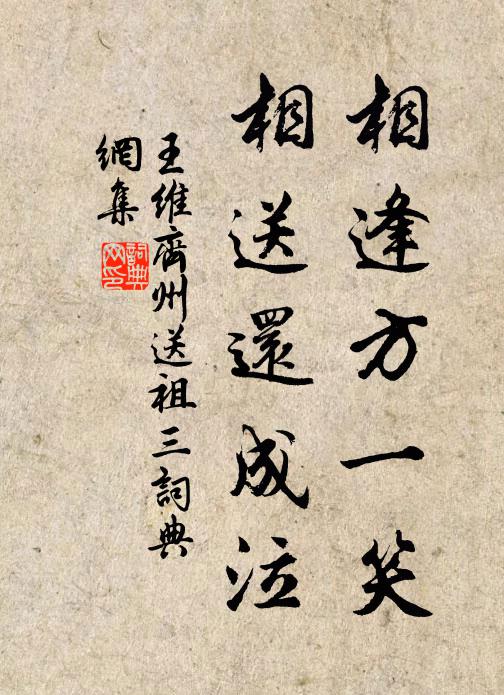 相逢方一笑
相送還成泣
王維齊州送祖三詞典
網集
詞典网印